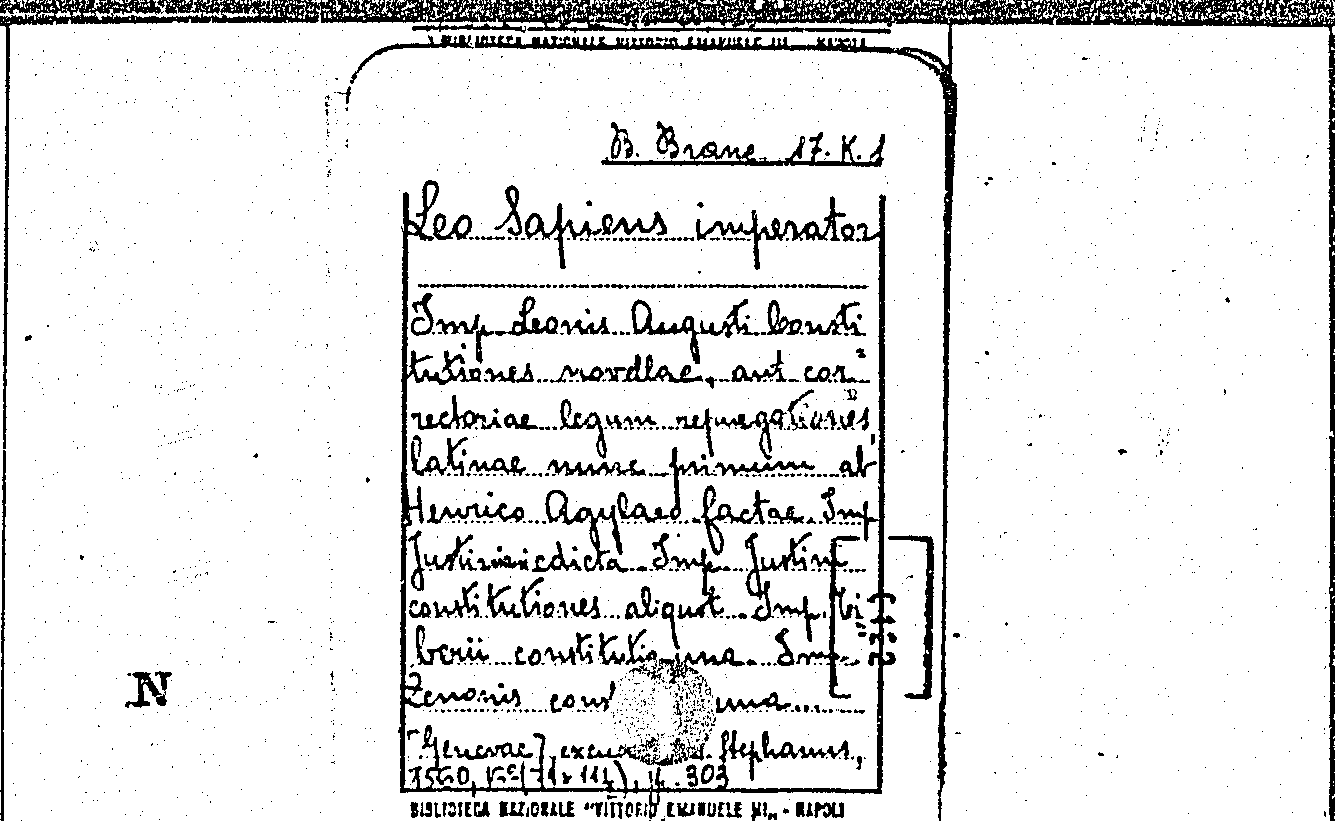 BIBLIOTECA NAZIONALE VITTORIO EMANUELE III - NAPOLI
B. Branc. 17. K. 1
Leo Sapiens imperator
Imp. Leonis Augusti Consti
tutiones novellae, aut cor
rectoriae legum repurgationes,
latinae nunc primum ab
Henrico Agylaeo factae. Imp
Justiniani edicta. Imp. Justini
constitutiones aliquot. Imp. Ti
berii constitutio una. Imp.
Zenonis una....
[Genevae], Stephanus,
1560, 303
N
BIBLIOTECA NAZIONALE "VITTORIO EMANUELE III" - NAPOLI